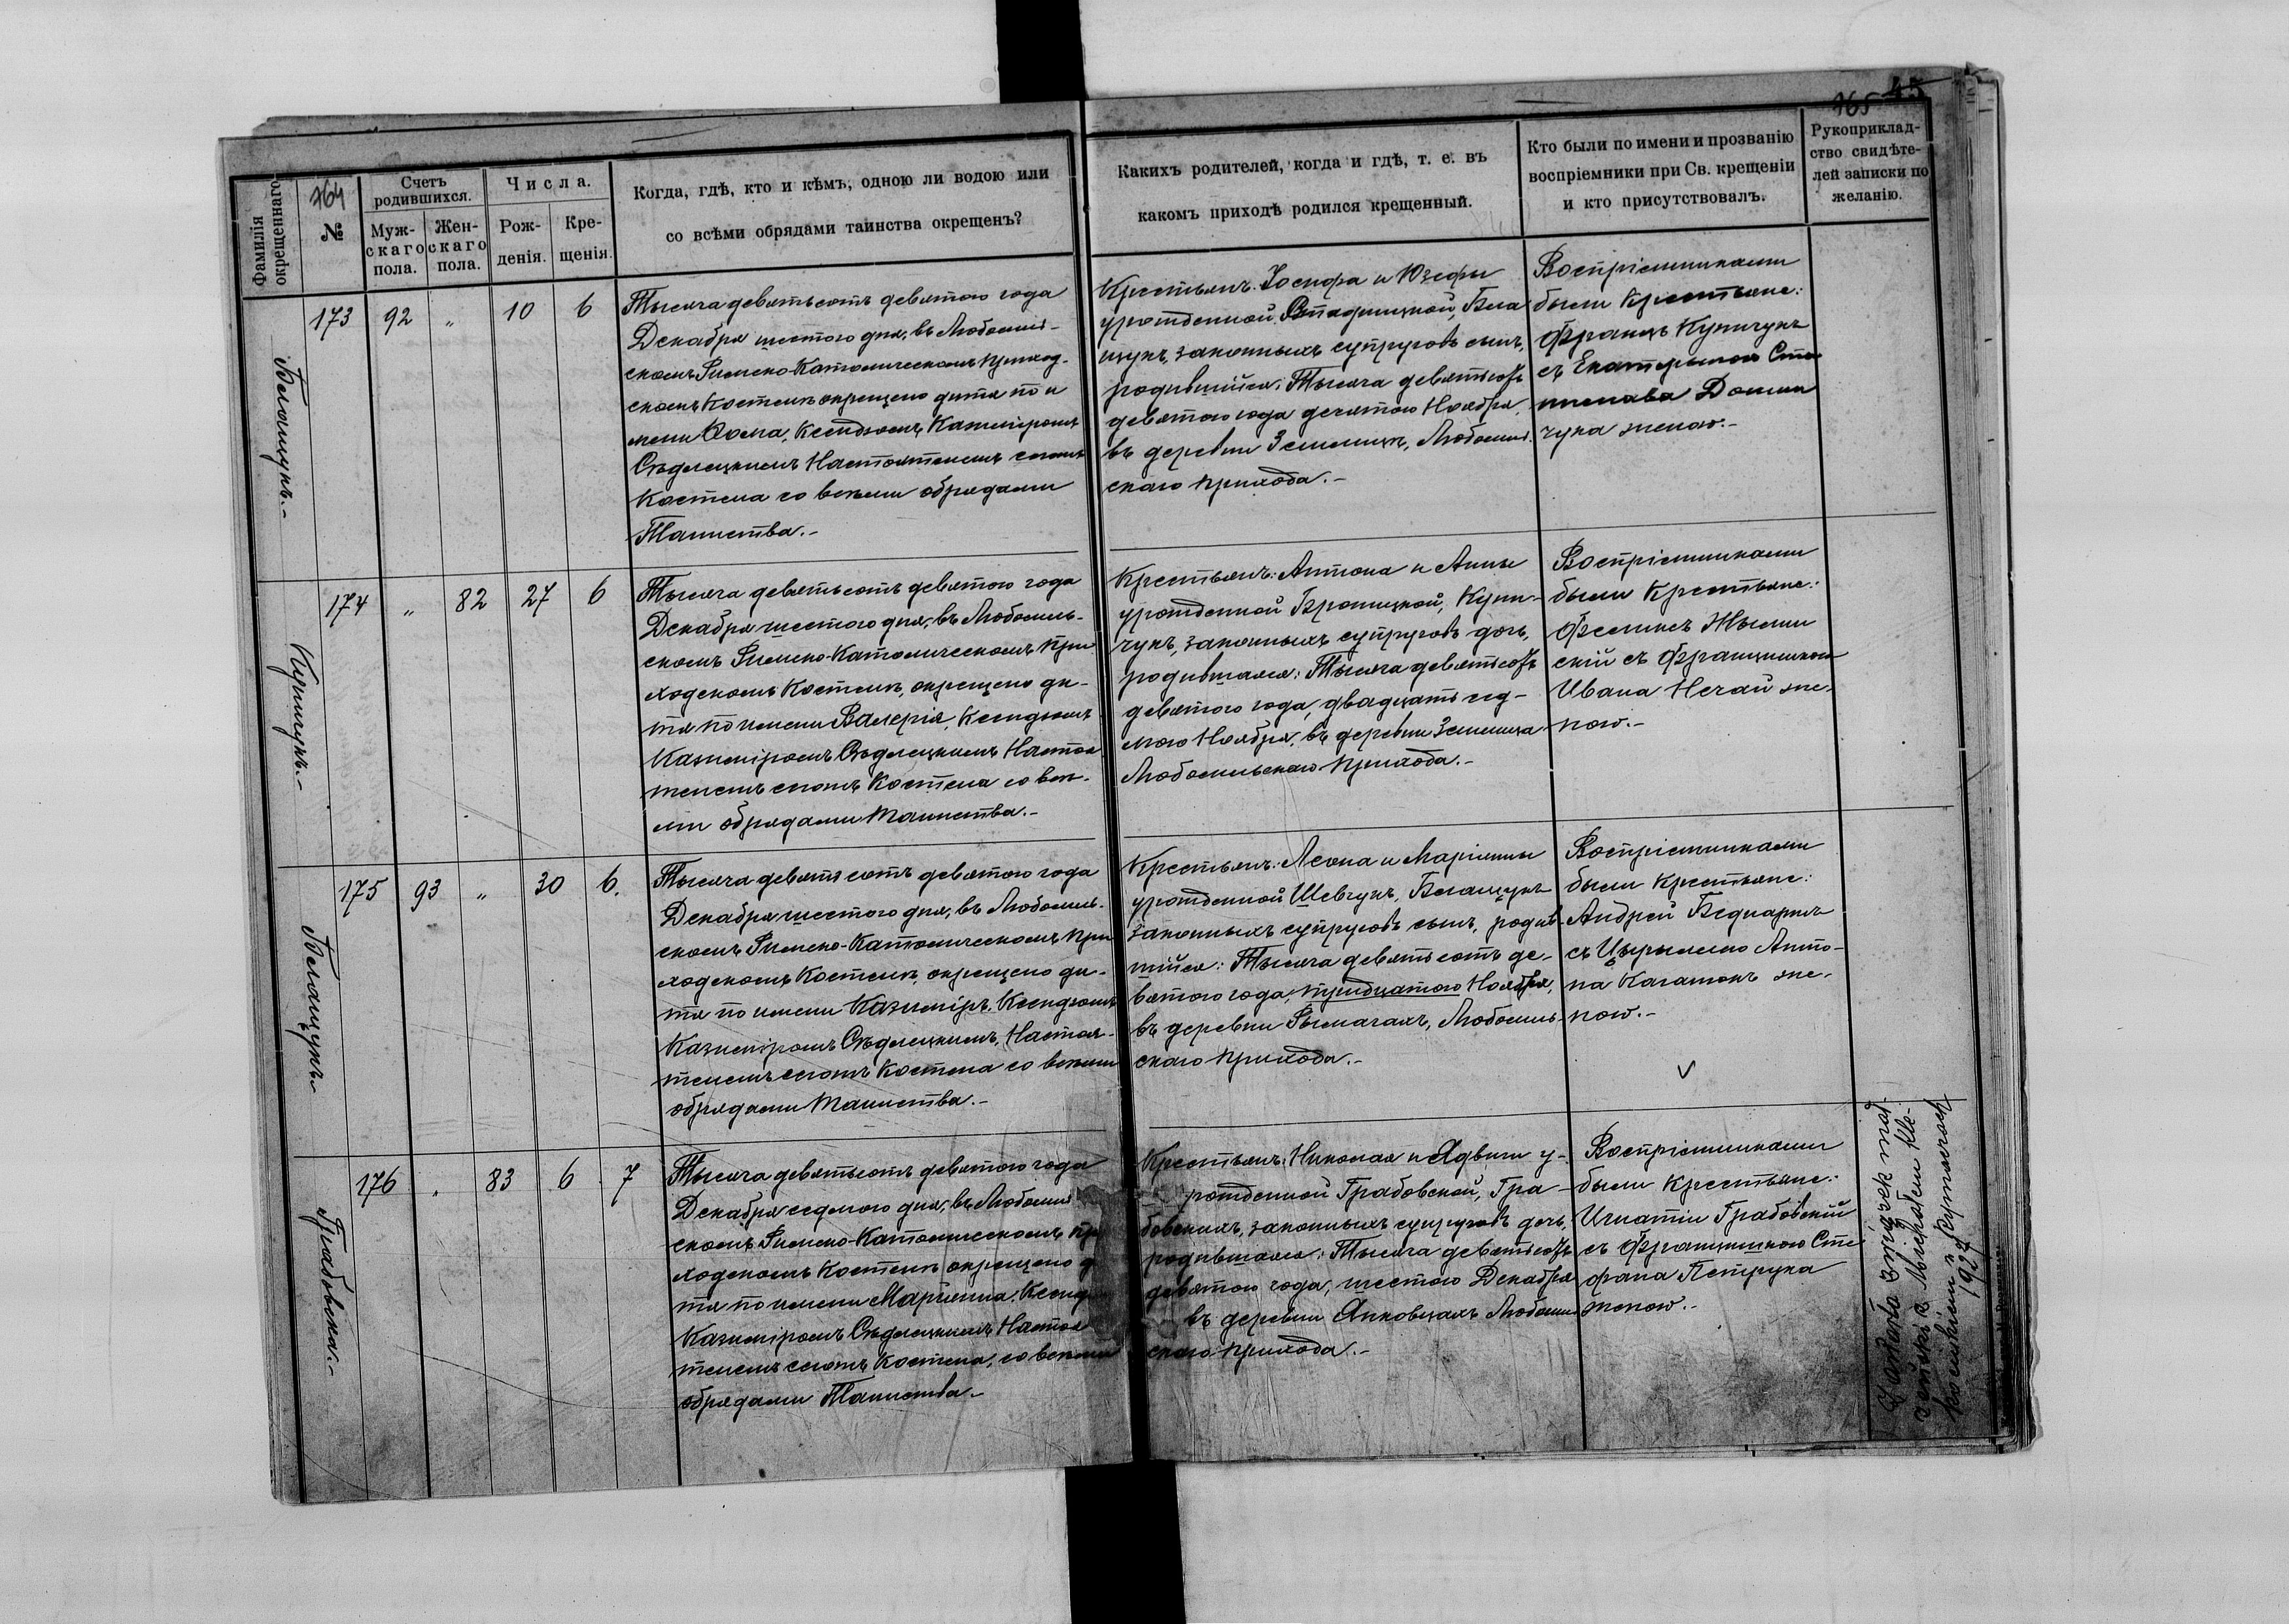 164
165
45
Фамилія окрещеннаго.
№
Счетъ родившихся.
Муж-скаго пола.
Жен-скаго пола.
Числа.
Рож-денія.
Кре-щенія.
Когда, гдѣ, кто и кѣмъ, одною ли водою или
со всѣми обрядами таинства окрещенъ?
Какихъ родителей, когда и гдѣ, т. е. въ
какомъ приходѣ родился крещенный.
Кто были по имени и прозванію
воспріемники при Св. крещеніи
и кто присутствовалъ.
Рукоприклад-
ство свидѣте-
лей записки по
желанію.
Белащукъ.-
173 92 " 10 6
Тысяча девятьсотъ девятого года
Декабря шестого дня, въ Любомль-
скомъ Римско-Католическомъ приход-
скомъ Костелѣ окрещено дитя по и
мени Ѳома, Ксендзомъ Казиміромъ
Сѣдлецкимъ Настоятелемъ сегожъ
Костела со всѣми обрядами
Таинства.-
Крестьянъ: Іосифа и Юзефы
урожденной, Бела
щукъ, законныхъ супруговъ сынъ,
родившійся: Тысяча девятьсотъ
девятого года десятого Ноября,
въ деревни Землицѣ, Любомль
скаго прихода.-
Воспріемниками
были Крестьяне:
Францъ Купчукъ
съ Екатериною Ста
нислава Домин
чука женою.-
Купчукъ.-
174 " 82 27 6
Тысяча девятьсотъ девятого года
Декабря шестого дня, въ Любомль-
скомъ Римско-Католическомъ при
ходскомъ Костелѣ, окрещено ди-
тя по имени Валерія, Ксендзомъ
Казиміромъ Сѣдлецкимъ Настоя
телемъ сегожъ Костела со всѣ-
ми обрядами Таинства.-
Крестьянъ: Антона и Анны
урожденной Броницкой, Куп-
чукъ, законныхъ супруговъ дочь,
родившаяся: Тысяча девятьсотъ
девятого года, двадцать сед-
мого Ноября, въ деревни Землица
Любомльскаго прихода.-
Воспріемниками
были Крестьяне:
Феликсъ Жылин
скій съ Францишкою
Ивана Нечай же-
ною.-
Белащукъ.-
175 93 " 30 6.
Тысяча девятьсотъ девятого года
Декабря шестого дня, въ Любомль-
скомъ Римско-Католическомъ при
ходскомъ Костелѣ, окрещено ди-
тя по имени Казиміръ, Ксендзомъ
Казиміромъ Сѣдлецкимъ, Настоя-
телемъ сегожъ Костела со всѣми
обрядами Таинства.-
Крестьянъ: Леона и Маріянны
урожденной Шевчукъ, Белащукъ
законныхъ супруговъ сынъ, родив-
шійся: Тысяча девятьсотъ де-
вятого года, тридцатого Ноября,
въ деревни Рымачахъ, Любомль-
скаго прихода.-
Воспріемниками
были крестьяне:
Андрей Беднарукъ
съ Цырылею Анто-
на Качатокъ же-
ною.-
Грабовска.-
176 " 83 6 7
Тысяча девятьсотъ девятого года
Декабря седмого дня, въ Любомль
скомъ Римско-Католическомъ при
ходскомъ Костелѣ окрещено д
тя по имени Маріянна, Ксенд
Казиміромъ Сѣдлецкимъ Настоя
телемъ сегожъ Костела, со всѣми
обрядами Таинства.-
Крестьянъ: Николая и Ядвиги у-
рожденной Грабовской, Гра-
бовскихъ, законныхъ супруговъ дочь,
родившаяся: Тысяча девятьсотъ
девятого года, шестого Декабря
въ деревни Янковцахъ Любомль
скаго прихода.-
Воспріемниками
были Крестьяне:
Игнатій Грабовскій
съ Францишкою Сте
фана Петрука
женою.-
Zawarła związek mał-
żeński z Michałem Kle-
192